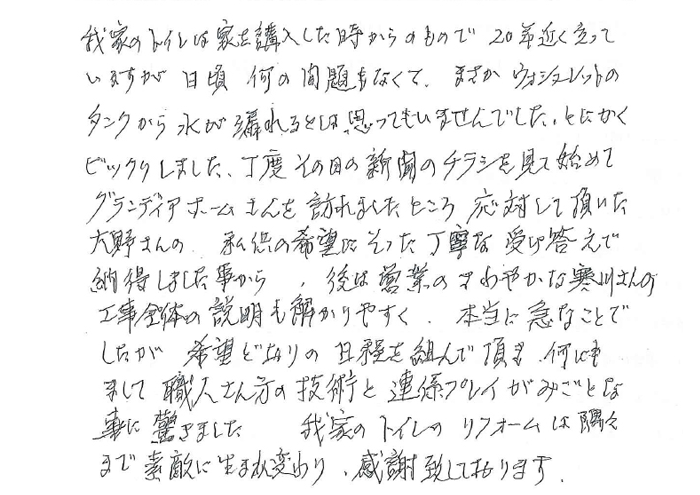 我家のトイレは家を購入した時からのもので 20年近く立って
いますが 日頃 何の問題もなくて、まさかウォシュレットの
タンクから 水が漏れるとは思ってもいませんでした。とにかく
ビックリしました、丁度 その日の新聞のチラシを見て始めて
グランディアホームさんを訪れましたところ 応対して頂いた
大野さんの 私供の希望にそった丁寧な受け答えで
納得しました事から、後は営業のさわやかな寒川さんの
工事全体の説明も解かりやすく、本当に急なことで
したが 希望どおりの日程を組んで頂き 何にも
まして 職人さん方の技術と連係プレイがみごとな
事に驚きました 我家のトイレのリフォームは隅々
まで素敵に生まれ変わり、感謝致しております.